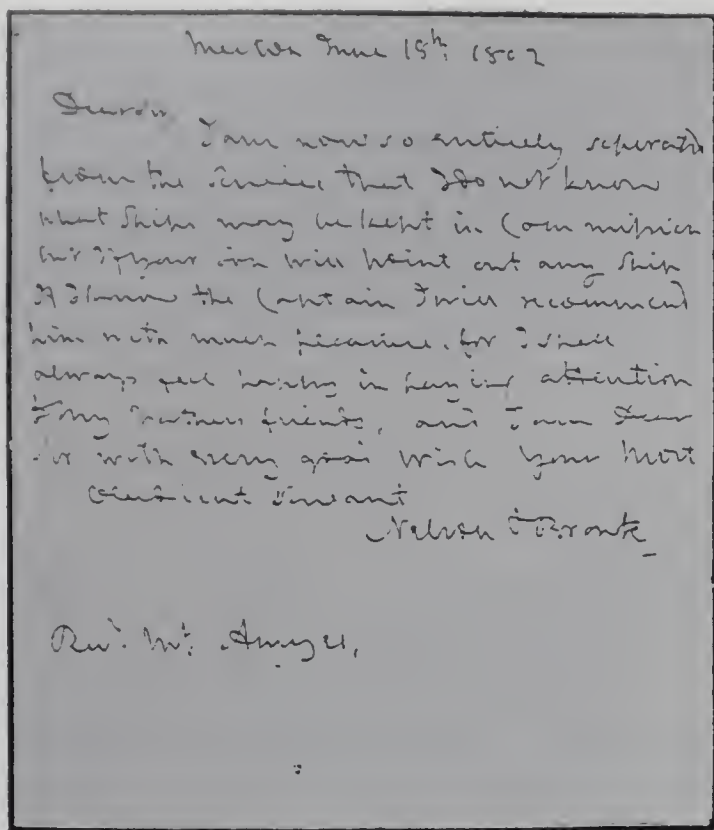 Merton June 15th: 1802
Dear Sir
I am now so entirely seperated
from the Service that I do not know
what Ships may be kept in Commission
but if your son will point out any Ship
& I know the Captain I will recommend
him with much pleasure, for I shall
always feel happy in paying attention
to my fathers friends, and I am Dear
Sir with every good wish your most
Obedient Servant
Nelson & Bronte
Revd. Mr.